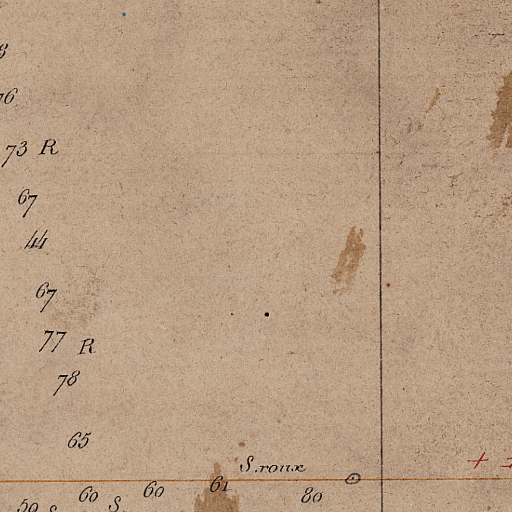 76
73 R
67
44
67
77 R
78
65
S.roux
60 S. 60 61 80
50 S
+